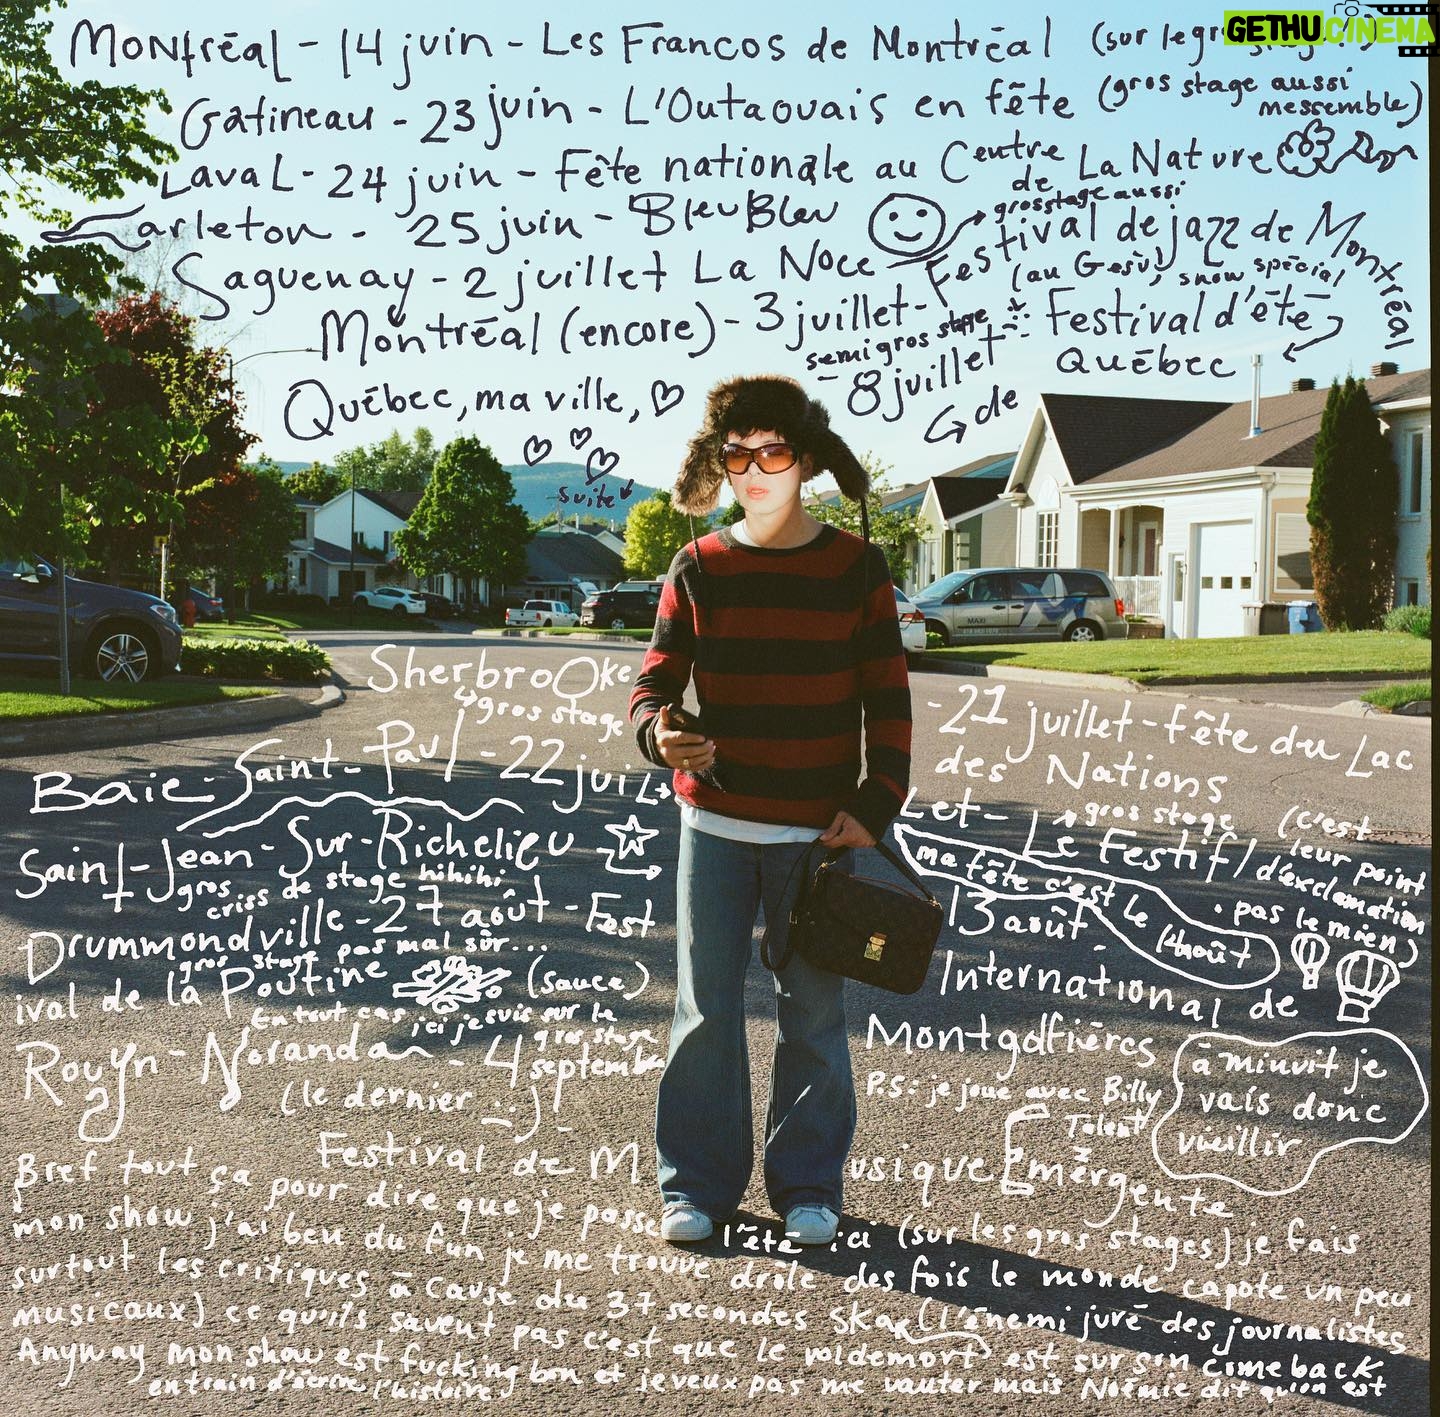 GETHU CINEMA
Montréal - 14 juin - Les Francos de Montréal (sur le gros stage !)
Gatineau - 23 juin - L'Outaouais en fête (gros stage aussi messemble)
Laval - 24 juin - Fête nationale au Centre de La Nature
gros stage aussi
Carleton - 25 juin - BleuBleu
Saguenay - 2 juillet La Noce
Montréal (encore) - 3 juillet - Festival de jazz de Montréal
(au Gesù, show spécial)
semi gros stage
Québec, ma ville, - 8 juillet - Festival d'été
de Québec
suite
Sherbrooke - 21 juillet - fête du Lac
des Nations
gros stage
Baie-Saint-Paul - 22 juillet - Le Festif!
gros stage
(c'est leur point d'exclamation pas le mien)
Saint-Jean-Sur-Richelieu
13 août - International de
Montgolfières
gros criss de stage hihihi
ma fête c'est le 14 août
à minuit je
vais donc
vieillir
P.S: je joue avec Billy
Talent
Drummondville - 27 août - Fest
ival de la Poutine (sauce)
gros stage pas mal sûr...
En tout cas ici je suis sur le
gros stage
Rouyn-Noranda - 4 septembre
(le dernier :)
Festival de Musique Émergente
Bref tout ça pour dire que je passe l'été ici (sur les gros stages) je fais
mon show j'ai ben du fun je me trouve drôle des fois le monde capote un peu
surtout les critiques à cause du 37 secondes Ska (l'énemi juré des journalistes
musicaux) ce qu'ils savent pas c'est que le voldemort est sur son comeback
Anyway mon show est fucking bon et je veux pas me vanter mais Noémie dit qu'on est
en train d'écrire l'histoire
MAXI